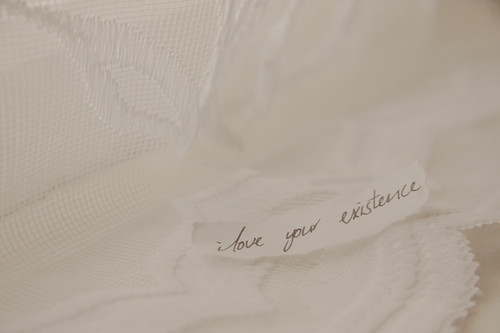 i love your existence